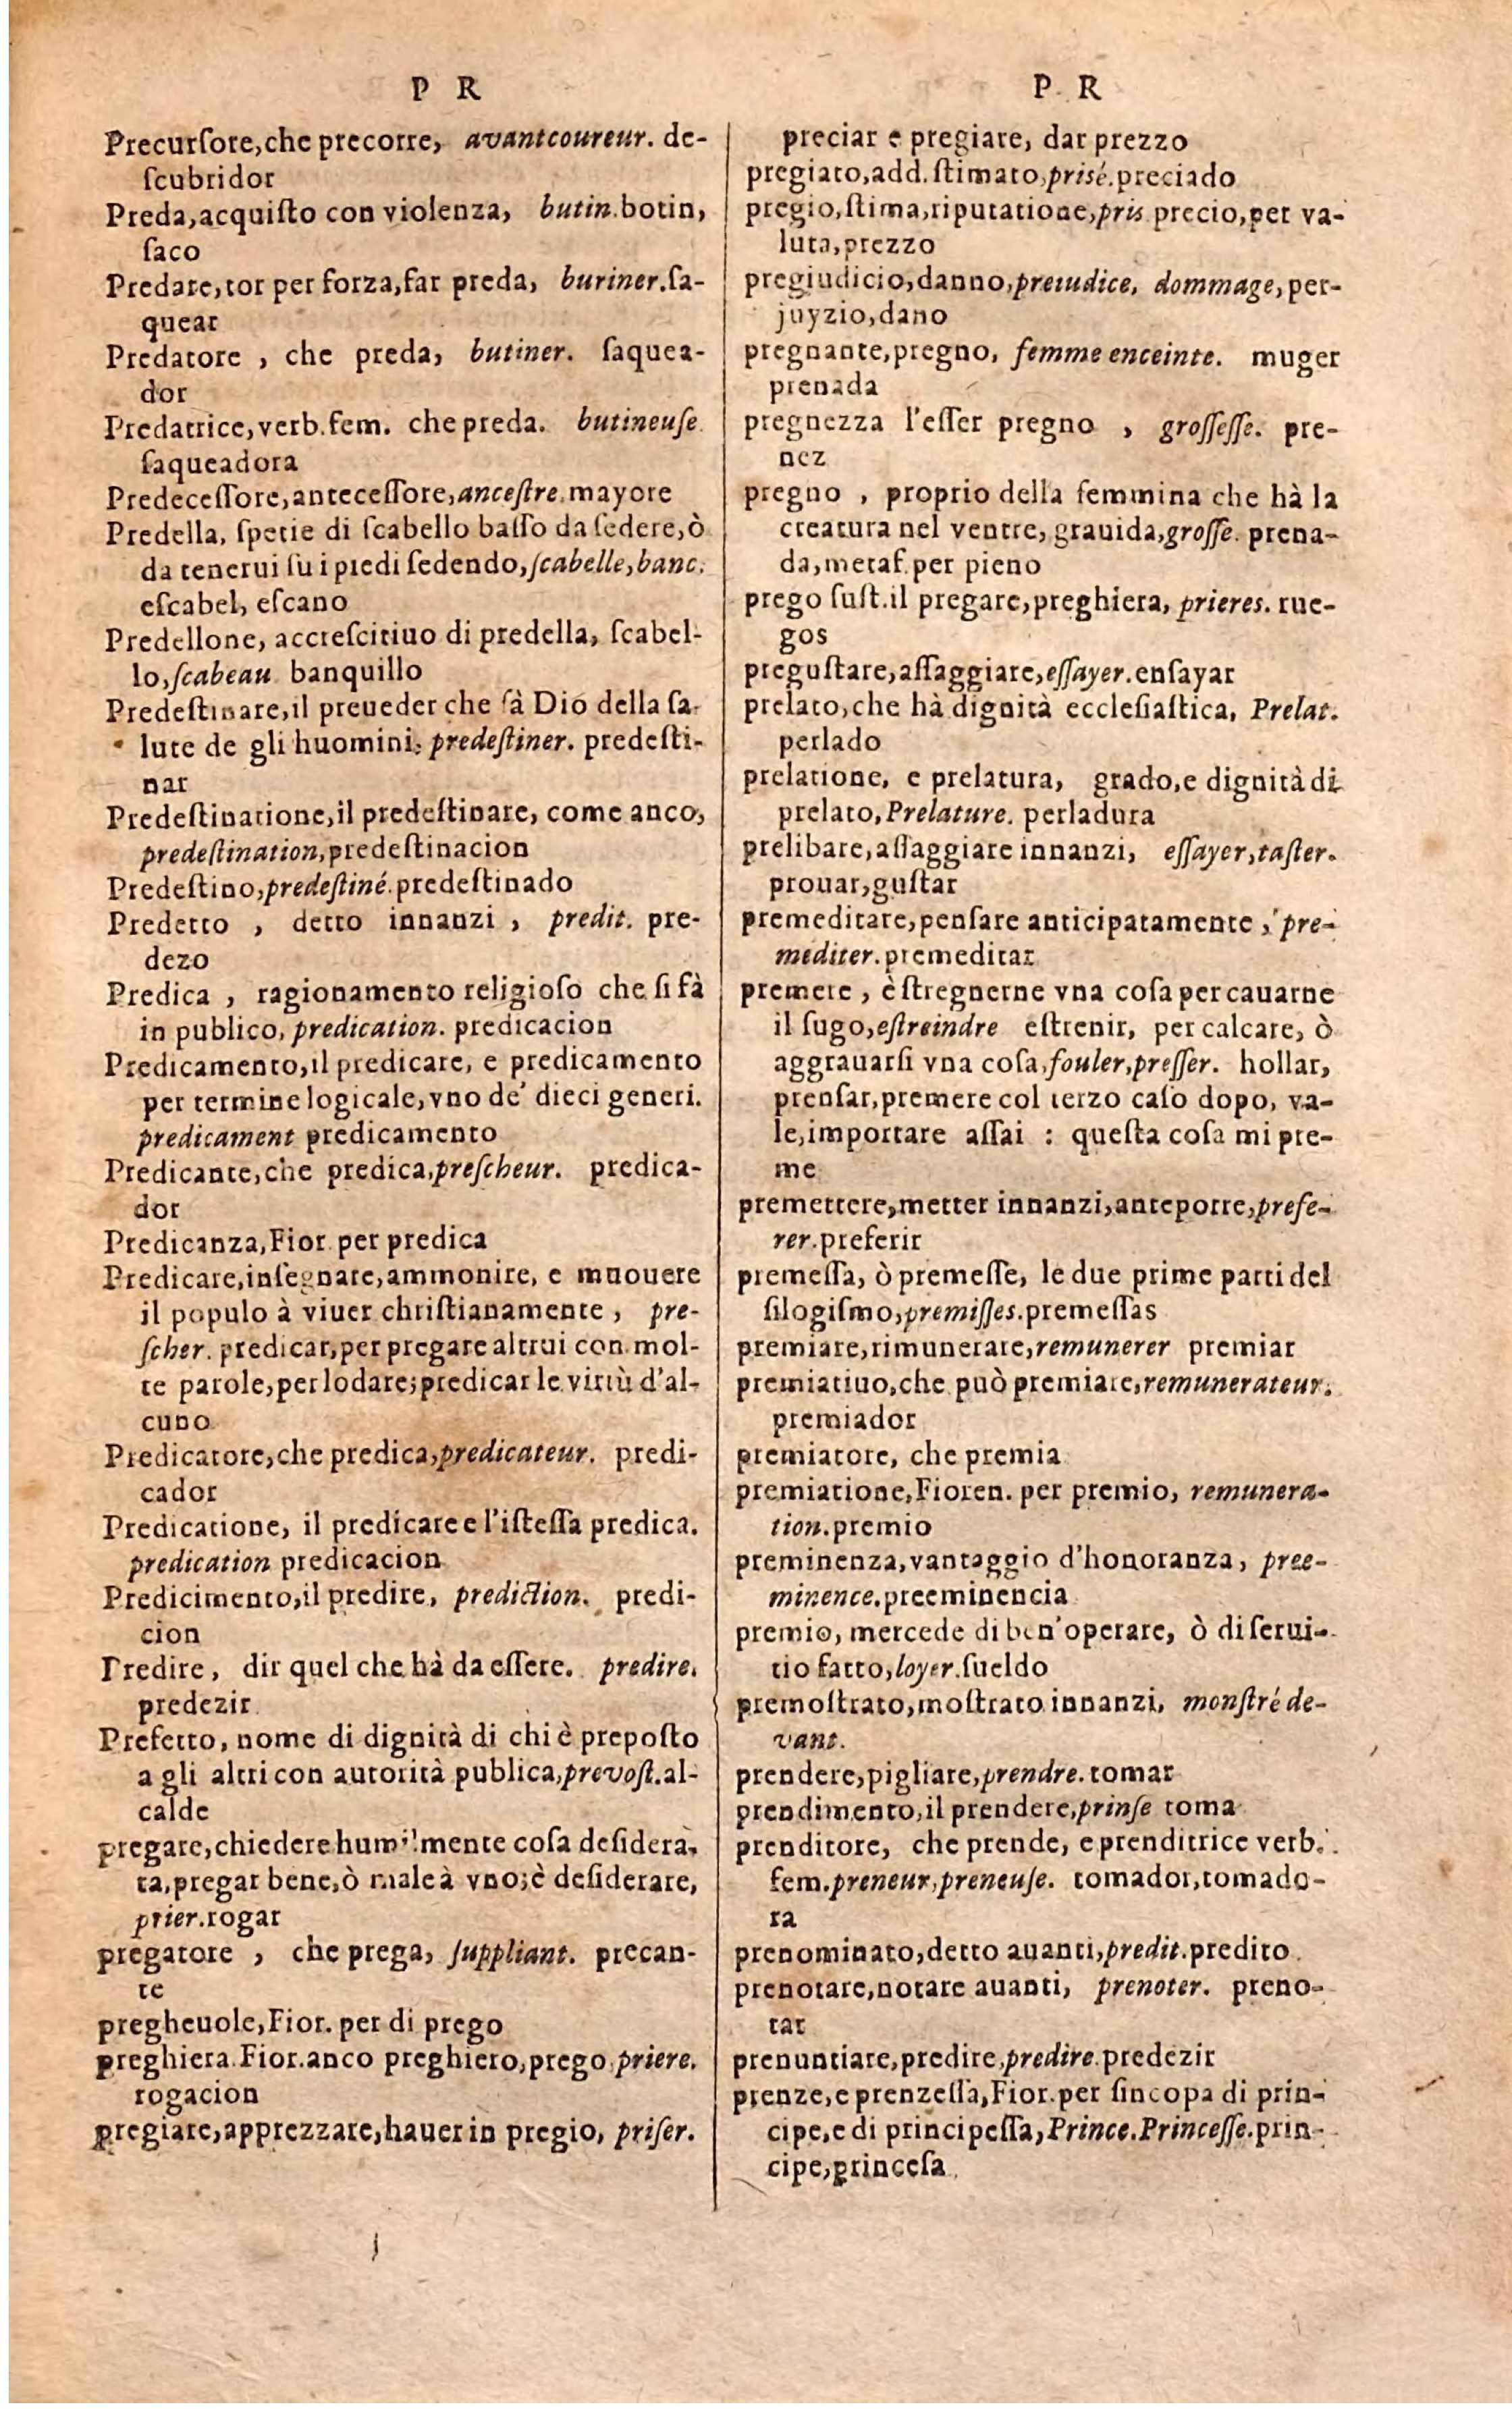 P R
Precurſore,che precorre, avantcoureur. de-
ſcubridor
Preda,acquiſto con violenza, butin.botin,
ſaco
Predare,tor per forza,far preda, buriner.ſa-
quear
Predatore , che preda, butiner. ſaquea-
dor
Predatrice,verb.fem. che preda. butineuſe
ſaqueadora
Predeceſſore,anteceſſore,anceſtre.mayore
Predella, ſpetie di ſcabello baſſo da ſedere,ò
da tenerui ſu i piedi ſedendo,ſcabelle,banc.
eſcabel, eſcano
Predellone, accreſcitiuo di predella, ſcabel-
lo,ſcabeau banquillo
Predeſtinare,il preueder che fà Dio della ſa-
lute de gli huomini, predeſtiner. predeſti-
nar
Predeſtinatione,il predeſtinare, come anco,
predeſtination,predeſtinacion
Predeſtino,predeſtiné.predeſtinado
Predetto , detto innanzi , predit. pre-
dezo
Predica , ragionamento religioſo che ſi fà
in publico, predication. predicacion
Predicamento,il predicare, e predicamento
per termine logicale,vno de' dieci generi.
predicament predicamento
Predicante,che predica,preſcheur. predica-
dor
Predicanza,Fior per predica
Predicare,inſegnare,ammonire, e muouere
il populo à viuer chriſtianamente , pre-
ſcher. predicar,per pregare altrui con mol-
te parole,per lodare;predicar le virtù d'al-
cuno
Predicatore,che predica,predicateur. predi-
cador
Predicatione, il predicare e l'iſteſſa predica.
predication predicacion
Predicimento,il predire, prediction. predi-
cion
Predire, dir quel che hà da eſſere. predire.
predezir
Prefetto, nome di dignità di chi è prepoſto
a gli altri con autorità publica,prevoſt.al-
calde
pregare,chiedere humilmente coſa deſidera-
ta,pregar bene,ò male à vno;è deſiderare,
prier.rogar
pregatore , che prega, ſuppliant. precan-
te
pregheuole,Fior. per di prego
preghiera.Fior.anco preghiero,prego priere.
rogacion
pregiare,apprezzare,hauer in pregio, priſer.
P R
preciar e pregiare, dar prezzo
pregiato,add.ſtimato,prisé.preciado
pregio,ſtima,riputatione,pris precio,per va-
luta,prezzo
pregiudicio,danno,preiudice, dommage,per-
juyzio,dano
pregnante,pregno, femme enceinte. muger
prenada
pregnezza l'eſſer pregno , groſſeſſe. pre-
nez
pregno , proprio della femmina che hà la
creatura nel ventre, grauida,groſſe. prena-
da,metaf.per pieno
prego ſuſt.il pregare,preghiera, prieres. rue-
gos
preguſtare,aſſaggiare,eſſayer.enſayar
prelato,che hà dignità eccleſiaſtica, Prelat.
perlado
prelatione, e prelatura, grado,e dignità di
prelato,Prelature. perladura
prelibare,aſſaggiare innanzi, eſſayer,taſter.
prouar,guſtar
premeditare,penſare anticipatamente , pre-
mediter.premeditar
premere , è ſtregnerne vna coſa per cauarne
il ſugo,eſtreindre eſtrenir, per calcare, ò
aggrauarſi vna coſa,fouler,preſſer. hollar,
prenſar,premere col terzo caſo dopo, va-
le,importare aſſai : queſta coſa mi pre-
me
premettere,metter innanzi,anteporre,prefe-
rer.preferir
premeſſa, ò premeſſe, le due prime parti del
ſilogiſmo,premiſſes.premeſſas
premiare,rimunerare,remunerer premiar
premiatiuo,che può premiare,remunerateur.
premiador
premiatore, che premia
premiatione,Fioren. per premio, remunera-
tion.premio
preminenza,vantaggio d'honoranza, pree-
minence.preeminencia
premio, mercede di ben'operare, ò di ſerui-
tio fatto,loyer.ſueldo
premoſtrato,moſtrato innanzi, monſtré de-
vant.
prendere,pigliare,prendre.tomar
prendimento,il prendere,prinſe toma
prenditore, che prende, e prenditrice verb.
fem.preneur,preneuſe. tomador,tomado-
ra
prenominato,detto auanti,predit.predito
prenotare,notare auanti, prenoter. preno-
tar
prenuntiare,predire,predire.predezir
prenze,e prenzeſſa,Fior.per ſincopa di prin-
cipe,e di principeſſa,Prince.Princeſſe.prin-
cipe,princeſa